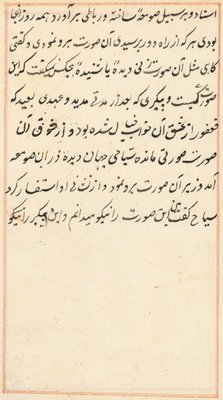 استاد و بر سبیل صومعه ساخته و رباطی برآورد همه روز آنجا
بودی هر که از راه دور برسیدی آن صورت برو نمودی و گفتی
گاهی مثل آن صورتی در دیده یا شنیده هیچکس نگفت که این
صورت کیست و پیکری که بعد از مدتی مدید و عهدی بعید که
فغفور از عشق آن خواب خیال شده بود و از شوق آن
صورت صورتی مانده سیاحی جهان دیده در ان صومعه
آمد وزیر آن صورت برو نمود و از نشان او استفسار کرد
سیاح گفت من این صورت را نیکو میدانم و این پیکر را نیکو